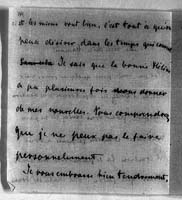 et les miens vont bien, c'est tout ce qu'on
peut désirer dans les temps qui
Je sais que la bonne
a pu plusieurs fois donner
de mes nouvelles. Vous comprendrez
que je ne peux pas le faire
personnellement.
Je vous embrasse bien tendrement,